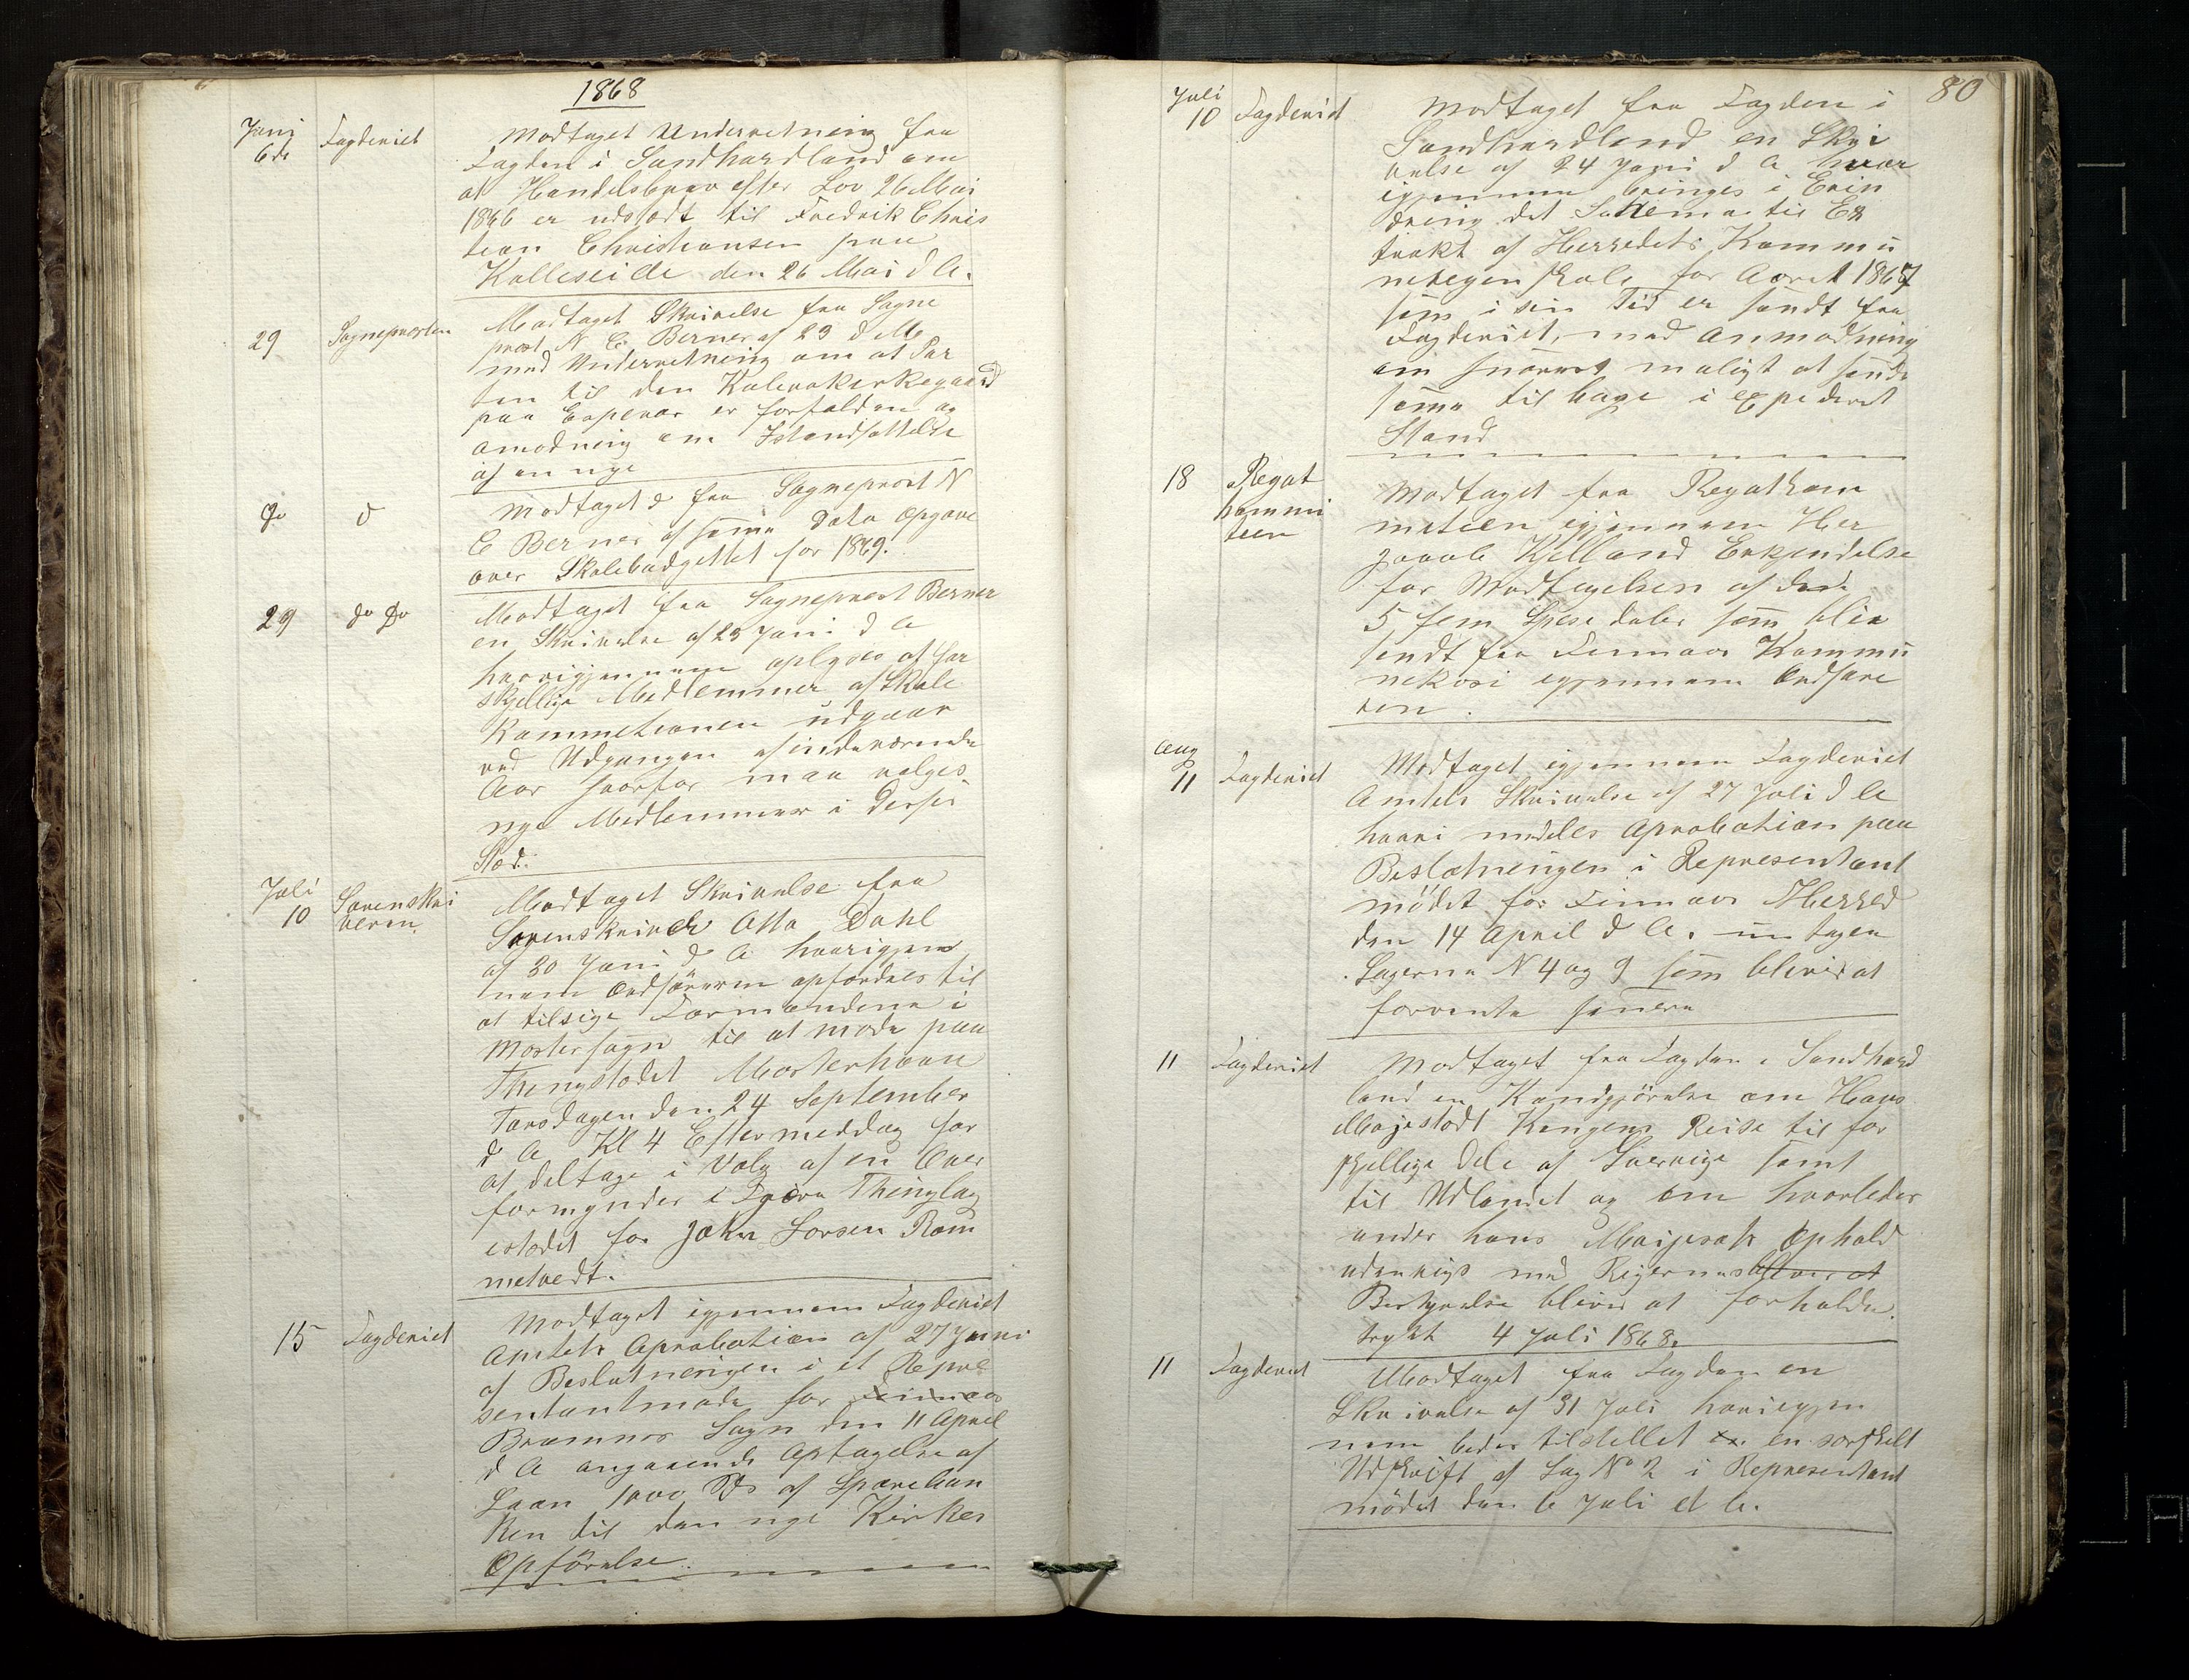 1868
Juni
6te
Fogderiet
Modtaget Underretning fra
Fogden i Sundhordland om
at Handelsbrev efter Lov 26 Mai
1866 er udstædt til Fredrik Chris
tian Christiansen paa
Kalleseide den 26 Mai d A.
29
Sognepresten
Modtaget Skrivelse fra Sogne
prest N C Berner af 23 d M
med Underretning om at Por
ten til den Kolerakirkegaard
paa Espevær er forfalden og
amodning om Istandsættelse
af en nye
do
d
Modtaget d fra Sogneprest N
C Berner af samme Dato Opgave
over Skolebudgettet for 1869.
29
do do
Modtaget fra Sogneprest Berner
en Skrivelse af 23 Juni d A
hvorigjennem oplyses at for
skjellige Medlemmer af Skole
Kommetionen udgaar
ved Udgangen af indeværende
Aar hvorfor maa valges
nye Medlemmer i derses
Sted.
Juli
10
Sorenskri
veren
Modtaget Skrivelse fra
Sorenskriver Otto Dahl
af 30 Juni d A hvorigjen
nem Ordføreren opfordres til
at tilsige Formændene i
Mostersogn til at møde paa
Thingstedet Mosterhavn
Torsdagen den 24 September
d A Kl 4 Eftermeddag for
at deltage i Valg af en Over
formynder i Fjære Thinglag
istedet for John Larsen Rom
metvedt.
15
Fogderiet
Modtaget igjennem Fogderiet
Amtets Aprobation af 27 Juni
af Beslutneingen i et Repre
sentantmøde for Finnaas
Bremnes Sogn den 11 April
d A angaaende Optagelse af
Laan 1000 Spd af Spareban
ken til den nye Kirkes
Opförelse.
80
Juli
10
Fogderiet
Modtaget fra Fogden i
Sundhordland en Skri
velse af 24 Juni d A hvor
igjennem bringes i Erin
dring det Schema til Ex
trakt af Herredets Kommu
neregenskab for Aaret 1867
som i sin Tid er sendt fra
Fogderiet, med Anmodning
om snarest muligt at sende
samme tilbage i expederet
Stand
18
Regat
kommi
teen
Modtaget fra Regatkom
meteen igjennem Her
Jacob Kjelland Erkjendelse
for Modtagelsen af den
5 fem Spesidaler som blev
sendt fra Finnaas Kommu
nekasi igjennem Ordføre
ren.
Aug
11
Fogderiet
Modtaget igjennem Fogderiet
Amtets Skrivelse af 27 Juli d A
hvori meddeles Aprobation paa
Beslutneingen i Representant
mödet for Finnaas Herred
den 14 April d A. untagen
Sagerne N 4 og 9 som bliver at
forvente senere
11
Fogderiet
Modtaget fra Fogden i Sundhord
land en Kundgjörelse om Hans
Majestædt Kongens Reise til for
skjellige Dele af Sverrige samt
til Udlandet og om hvorledes
under hans Maijestæts Ophold
udenrigs med Regjerens bliver at
Bestyrelse bliver at forholde.
trykt 4 Juli 1868.
11
Fogderiet
Modtaget fra Fogden en
Skrivelse af 31 Juli hvoriegjen
nem bedes tilstellet en en sarskelt
Udskrift af Sag No 2 i Representant
mödet den 6 Juli d A.